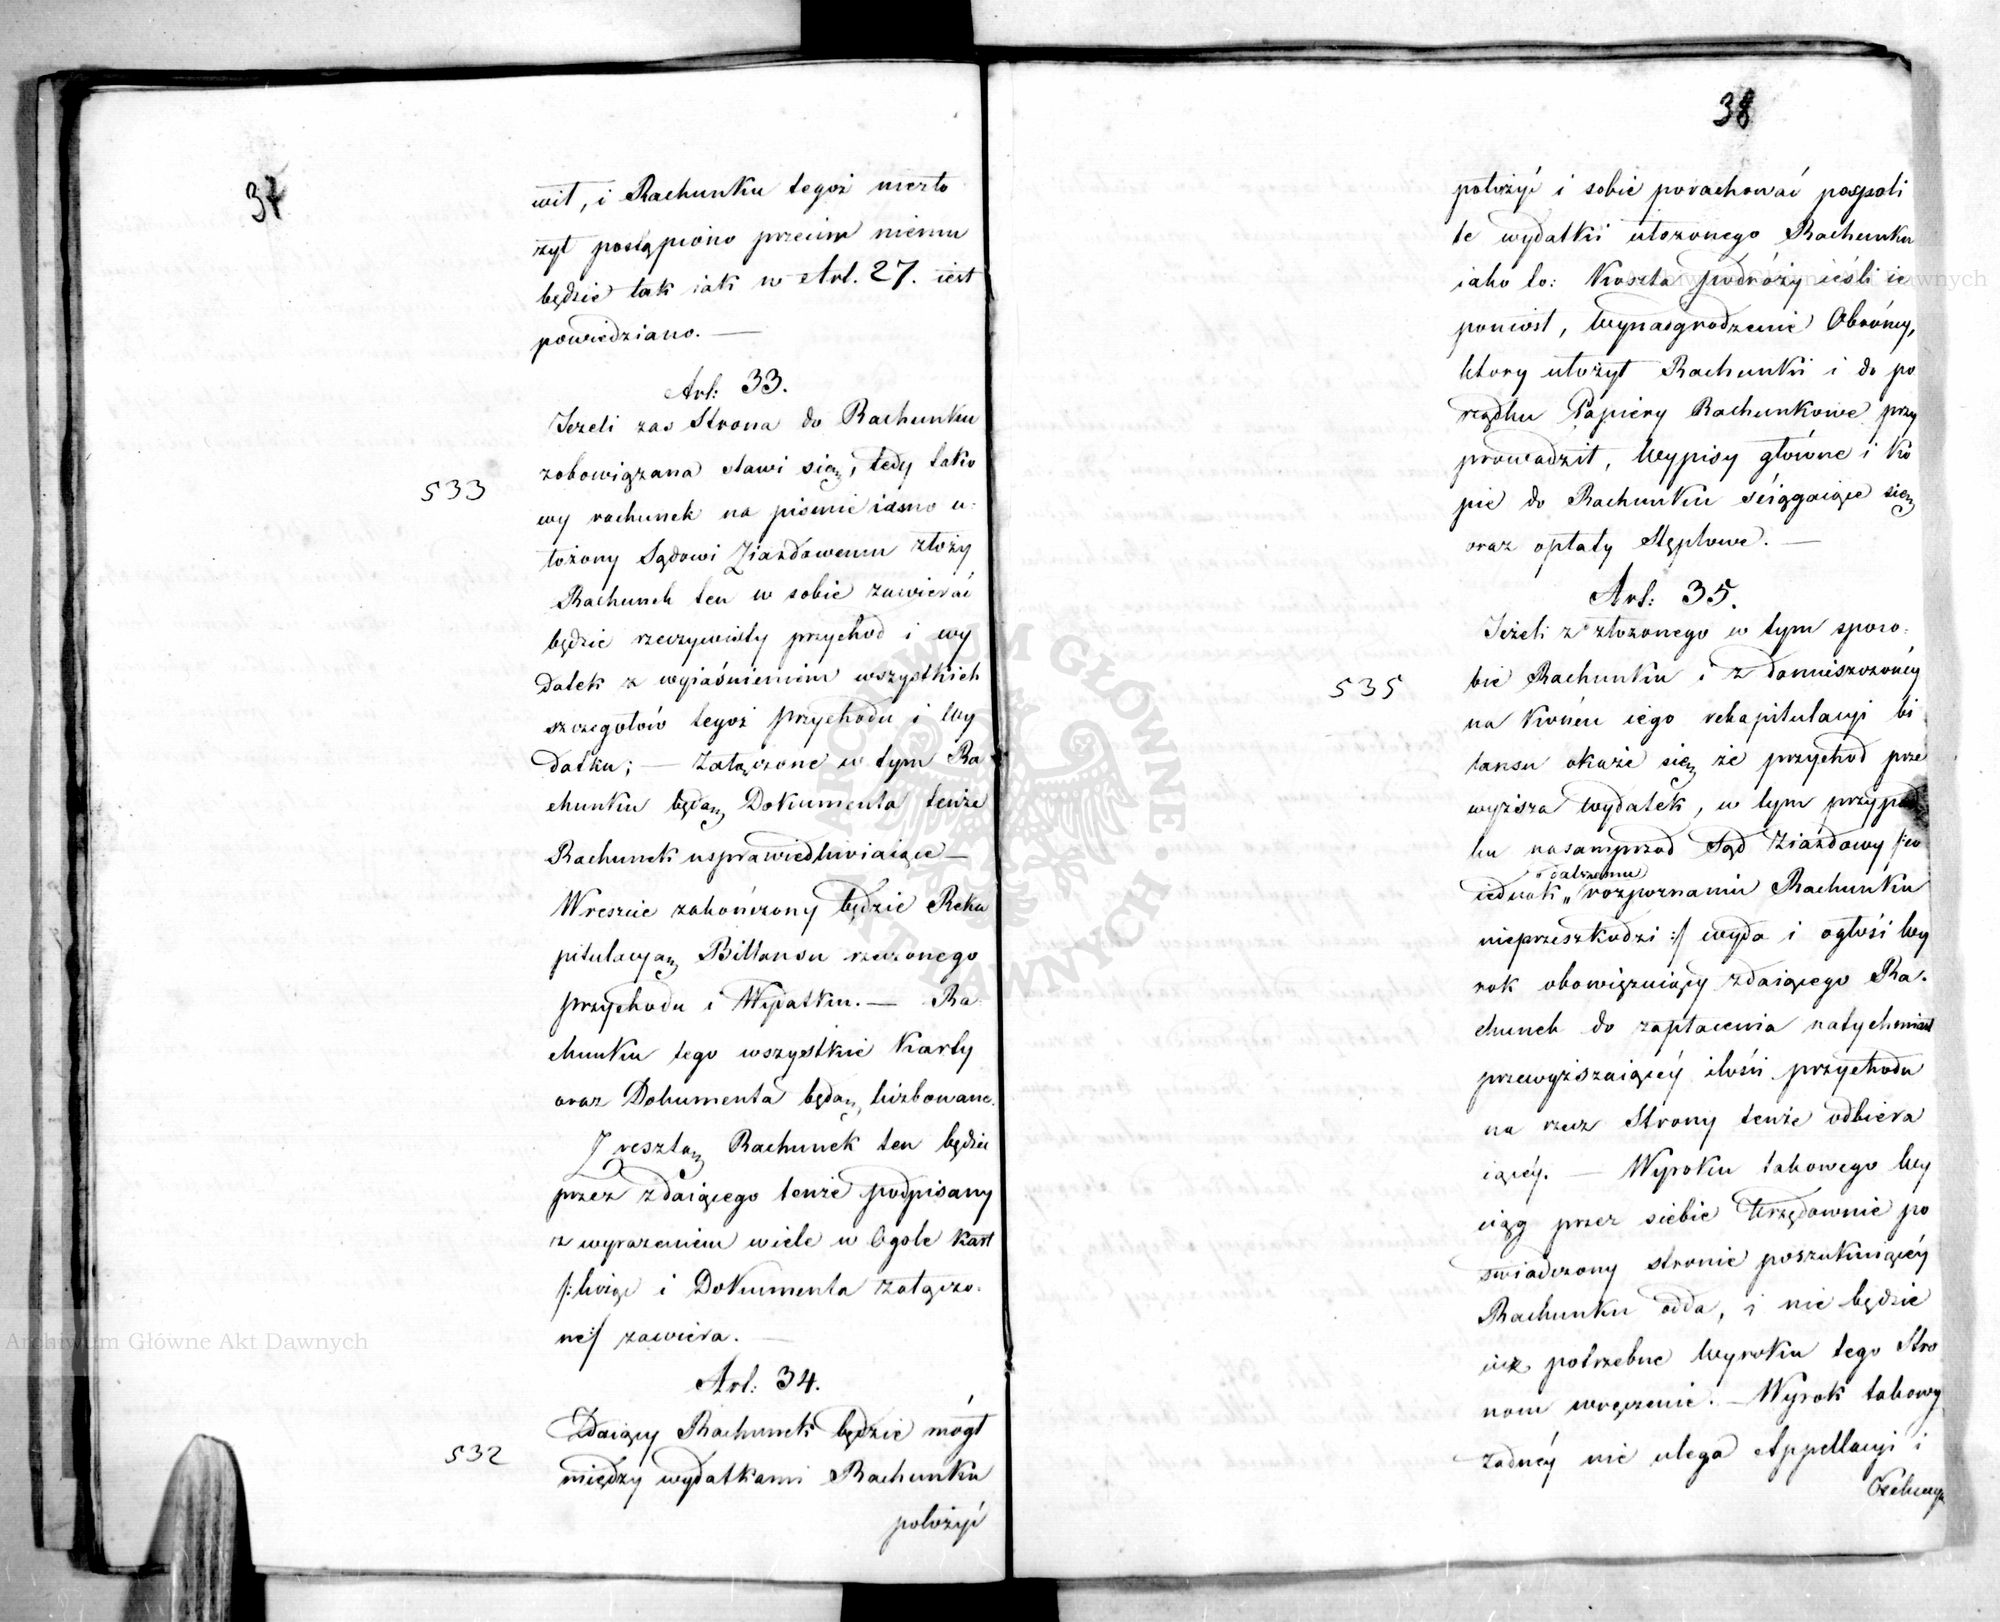 37
wił, i Rachunku tegoż niezło
żył postąpiono przeciw niemu
będzie tak iak w Art. 27. iest
powiedziano. —
Art: 33.
Jeżeli zas Strona do Rachunku
533
zobowiązana stawi się, tedy tako
wy rachunek na pismie iasno u-
łożony Sądowi Ziazdowemu złoży
Rachunek ten w sobie zawierać
będzie rzeczywisty przychod i wy
datek z wyiaśnieniem wszystkich
szczegołów tegoż przychodu i Wy
datku; — Załączone w tym Ra
chunku będą Dokumenta tenże
Rachunek usprawiedliwiaiące —
Wreszcie zakończony będzie Reka
pitulacyą Billansu rzeczonego
przychodu i Wydatku. — Ra
chunku tego wszystkie Karty
oraz Dokumenta będą liczbowane.
Z resztą Rachunek ten będzie
przez zdaiącego tenże podpisany
z wyrazeniem wiele w Ogole Kart
/:licząc i Dokumenta załączo-
ne:/ zawiera. —
Art: 34.
Zdaiący Rachunek będzie mógł
532
między wydatkami Rachunku
położyć
38
położyć i sobie porachować pospoli
te wydatki ułożonego Rachunku
iako to: Koszta podróży ieśli ie
poniosł, Wynadgrodzenie Obrońcy,
ktory ułożył Rachunki i do po
rządku Papiery Rachunkowe przy
prowadził, Wypisy główne i Ko
pie do Rachunku ściągaiące się
oraz opłaty Stęplowe. —
Art: 35.
Jeżeli z złożonego w tym sposo-
535
bie Rachunku i z domieszczonéy
na Końcu iego rekapitulacyi bi
lansu okaże się że przychod prze
wyższa wydatek, w tym przypad
ku nasamprzod Sąd Ziazdowy /:co
dalszemu
iednak „ rozpoznaniu Rachunku
nieprzeszkodzi :/ wyda i ogłosi Wy
rok obowiązuiący zdaiącego Ra-
chunek do zapłacenia natychmiast
przewyższaiącéy ilości przychodu
na rzecz Strony tenże odbiera
iącéy. — Wyroku takowego Wy
ciąg przez siebie Urzędownie po
swiadczony stronie poszukuiącéy
Rachunku odda, i nie będzie
iuż potrzebne Wyroku tego Stro
nom wręczenie. — Wyrok takowy
żadnéy nie ulega Appellacyi i
Archiwum Główne Akt Dawnych
Archiwum Główne Akt Dawnych
ARCHIWUM GŁÓWNE AKT DAWNYCH